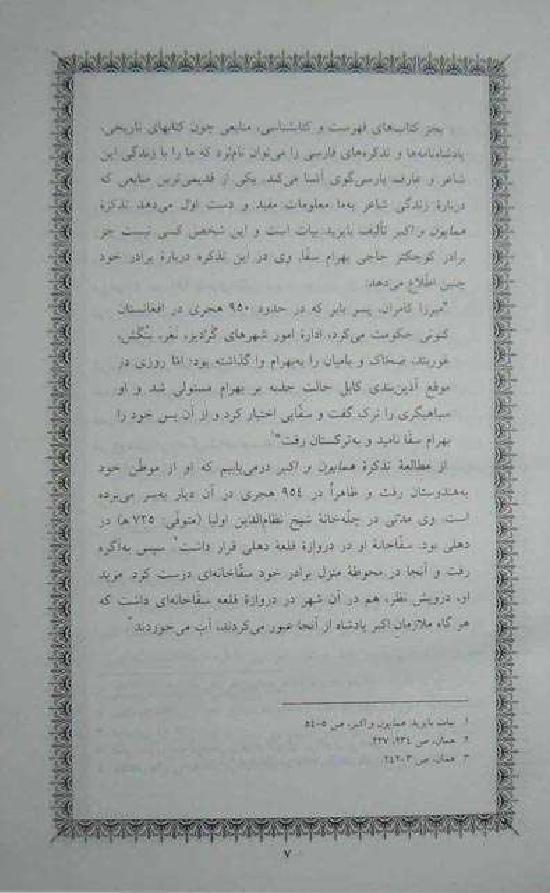 بجز کتاب‌های فهرست و کتابشناسی، منابعی چون کتابهای تاریخی،
پادشاه‌نامه‌ها و تذکره‌های فارسی را می‌توان نام‌بُرد که ما را با زندگی این
شاعر و عارف پارسی‌گوی آشنا می‌کند. یکی از قدیمی‌ترین منابعی که
دربارهٔ زندگی شاعر به‌ما معلومات مفید و دست اول می‌دهد تذکرهٔ
همایون و اکبر تألیف بایزید بیات است و این شخص کسی نیست جز
برادر کوچکتر حاجی بهرام سقّا. وی در این تذکره دربارهٔ برادر خود
چنین اطّلاع می‌دهد:
"میرزا کامران، پسر بابر که در حدود ۹۵۰ هجری در افغانستان
کنونی حکومت می‌کرد، ادارهٔ امور شهرهای گُرادیز، نغر، بنگش،
غوربند، ضحاک و بامیان را به‌بهرام وا گذاشته بود؛ امّا روزی در
موقع آذین‌بندی کابل حالت جذبه بر بهرام مستولی شد و او
سپاهیگری را ترک گفت و سقّایی اختیار کرد و از آن پس خود را
بهرام سقّا نامید و به‌ترکستان رفت"۱.
از مطالعهٔ تذکرهٔ همایون و اکبر درمی‌یابیم که او از موطن خود
به‌هندوستان رفت و ظاهراً در ۹۵۴ هجری در آن دیار به‌سر می‌برده
است. وی مدتی در چلّه‌خانهٔ شیخ نظام‌الدین اولیا (متوفّی: ۷۲۵ ه) در
دهلی بود. سقّاخانهٔ او در دروازهٔ قلعهٔ دهلی قرار داشت۲. سپس به‌آگره
رفت و آنجا در محوطهٔ منزل برادر خود سقّاخانه‌ای دوست کرد. مرید
او، درویش نظر، هم در آن شهر در دروازهٔ قلعه سقّاخانه‌ای داشت که
هر گاه ملازمان اکبر پادشاه از آنجا عبور می‌کردند، آب می‌خوردند۳.
۱ بیات بایزید: همایون و اکبر، ص ۵-۵۴.
۲ همان، ص ۲۳۴، ۲۳۷.
۳ همان، ص ۳-۲۴۲.
۷